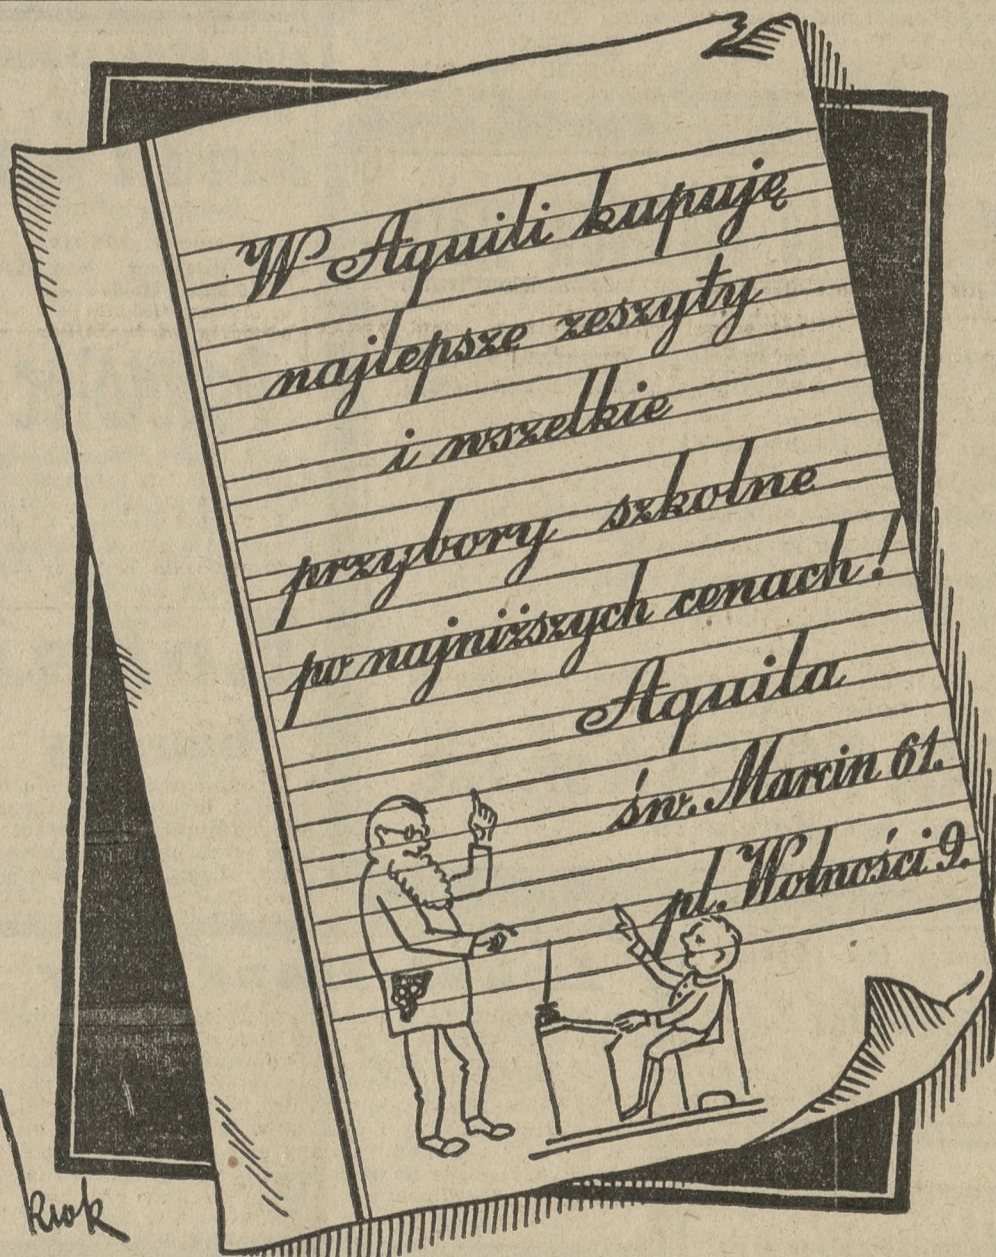 W Aquili kupuję
najlepsze zeszyty
i wszelkie
przybory szkolne
po najniższych cenach!
Aquila
św. Marcin 61.
pl. Wolności 9.